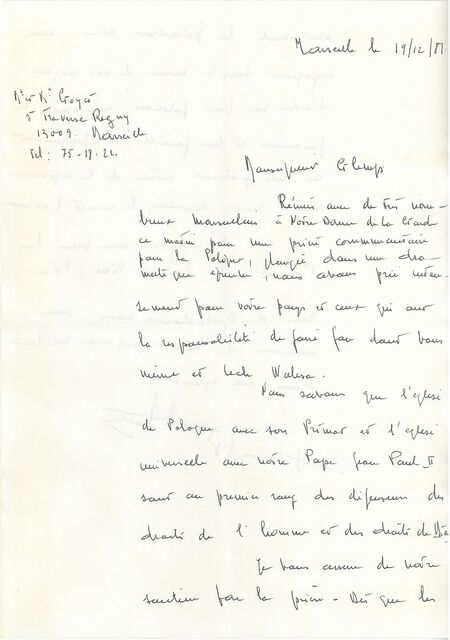 Marseille le 19/12/81
Mr et Me
5 Traverse Regny
13009. Marseille
Tel: 75-18-22.
Monseigneur Glemp
Réunis avec de très nom-
breux Marseillais à Notre Dame de la Garde
ce matin pour une prière communautaire
pour la Pologne, plongée dans une dra-
matique épreuve, nous avons prié inten-
sement pour votre pays et ceux qui ont
la responsabilité de faire face dont vous
même et Lech Walesa.
Nous savons que l'église
de Pologne avec son Primat et l'église
universelle avec notre Pape Jean Paul II
sont au premier rang des défenseurs des
droits de l'homme et des droits de Dieu
Je vous assure de notre
soutien par la prière - Dès que les